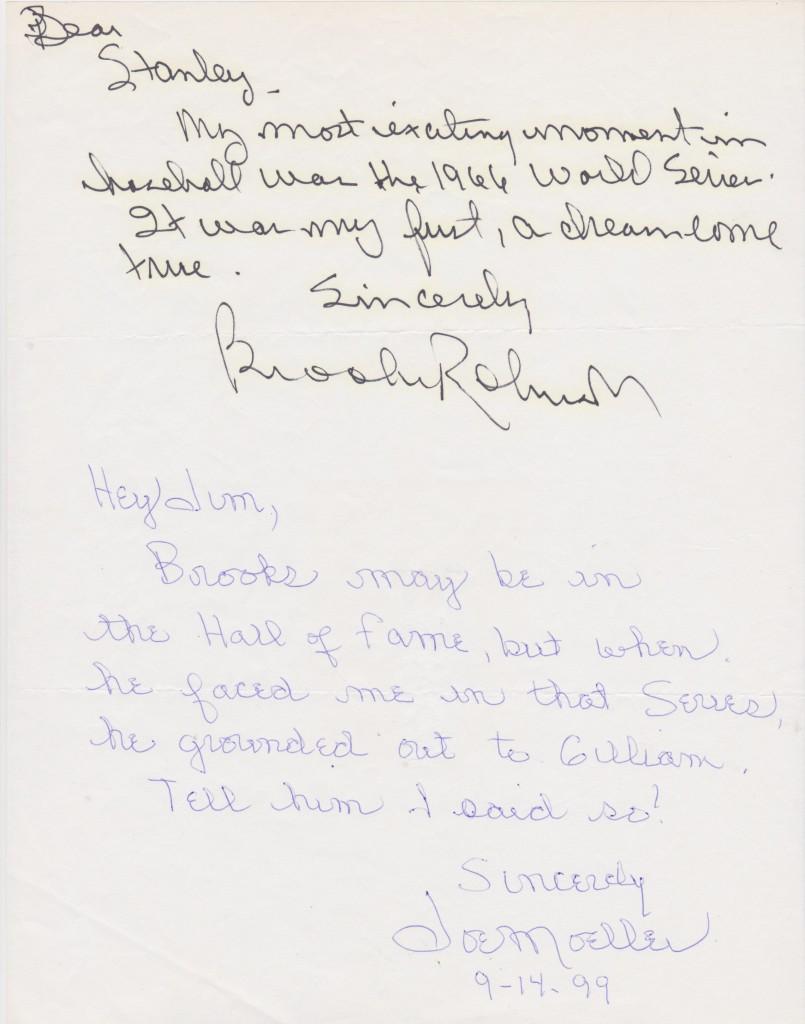 Dear
Stanley -
My most exciting moment in
baseball was the 1966 World Series.
It was my first, a dream come
true.
Sincerely
Brooks Robinson
Hey Jim,
Brooks may be in
the Hall of Fame, but when
he faced me in that Series,
he grounded out to Gilliam.
Tell him I said so!
Sincerely
Joe Moeller
9-14-99